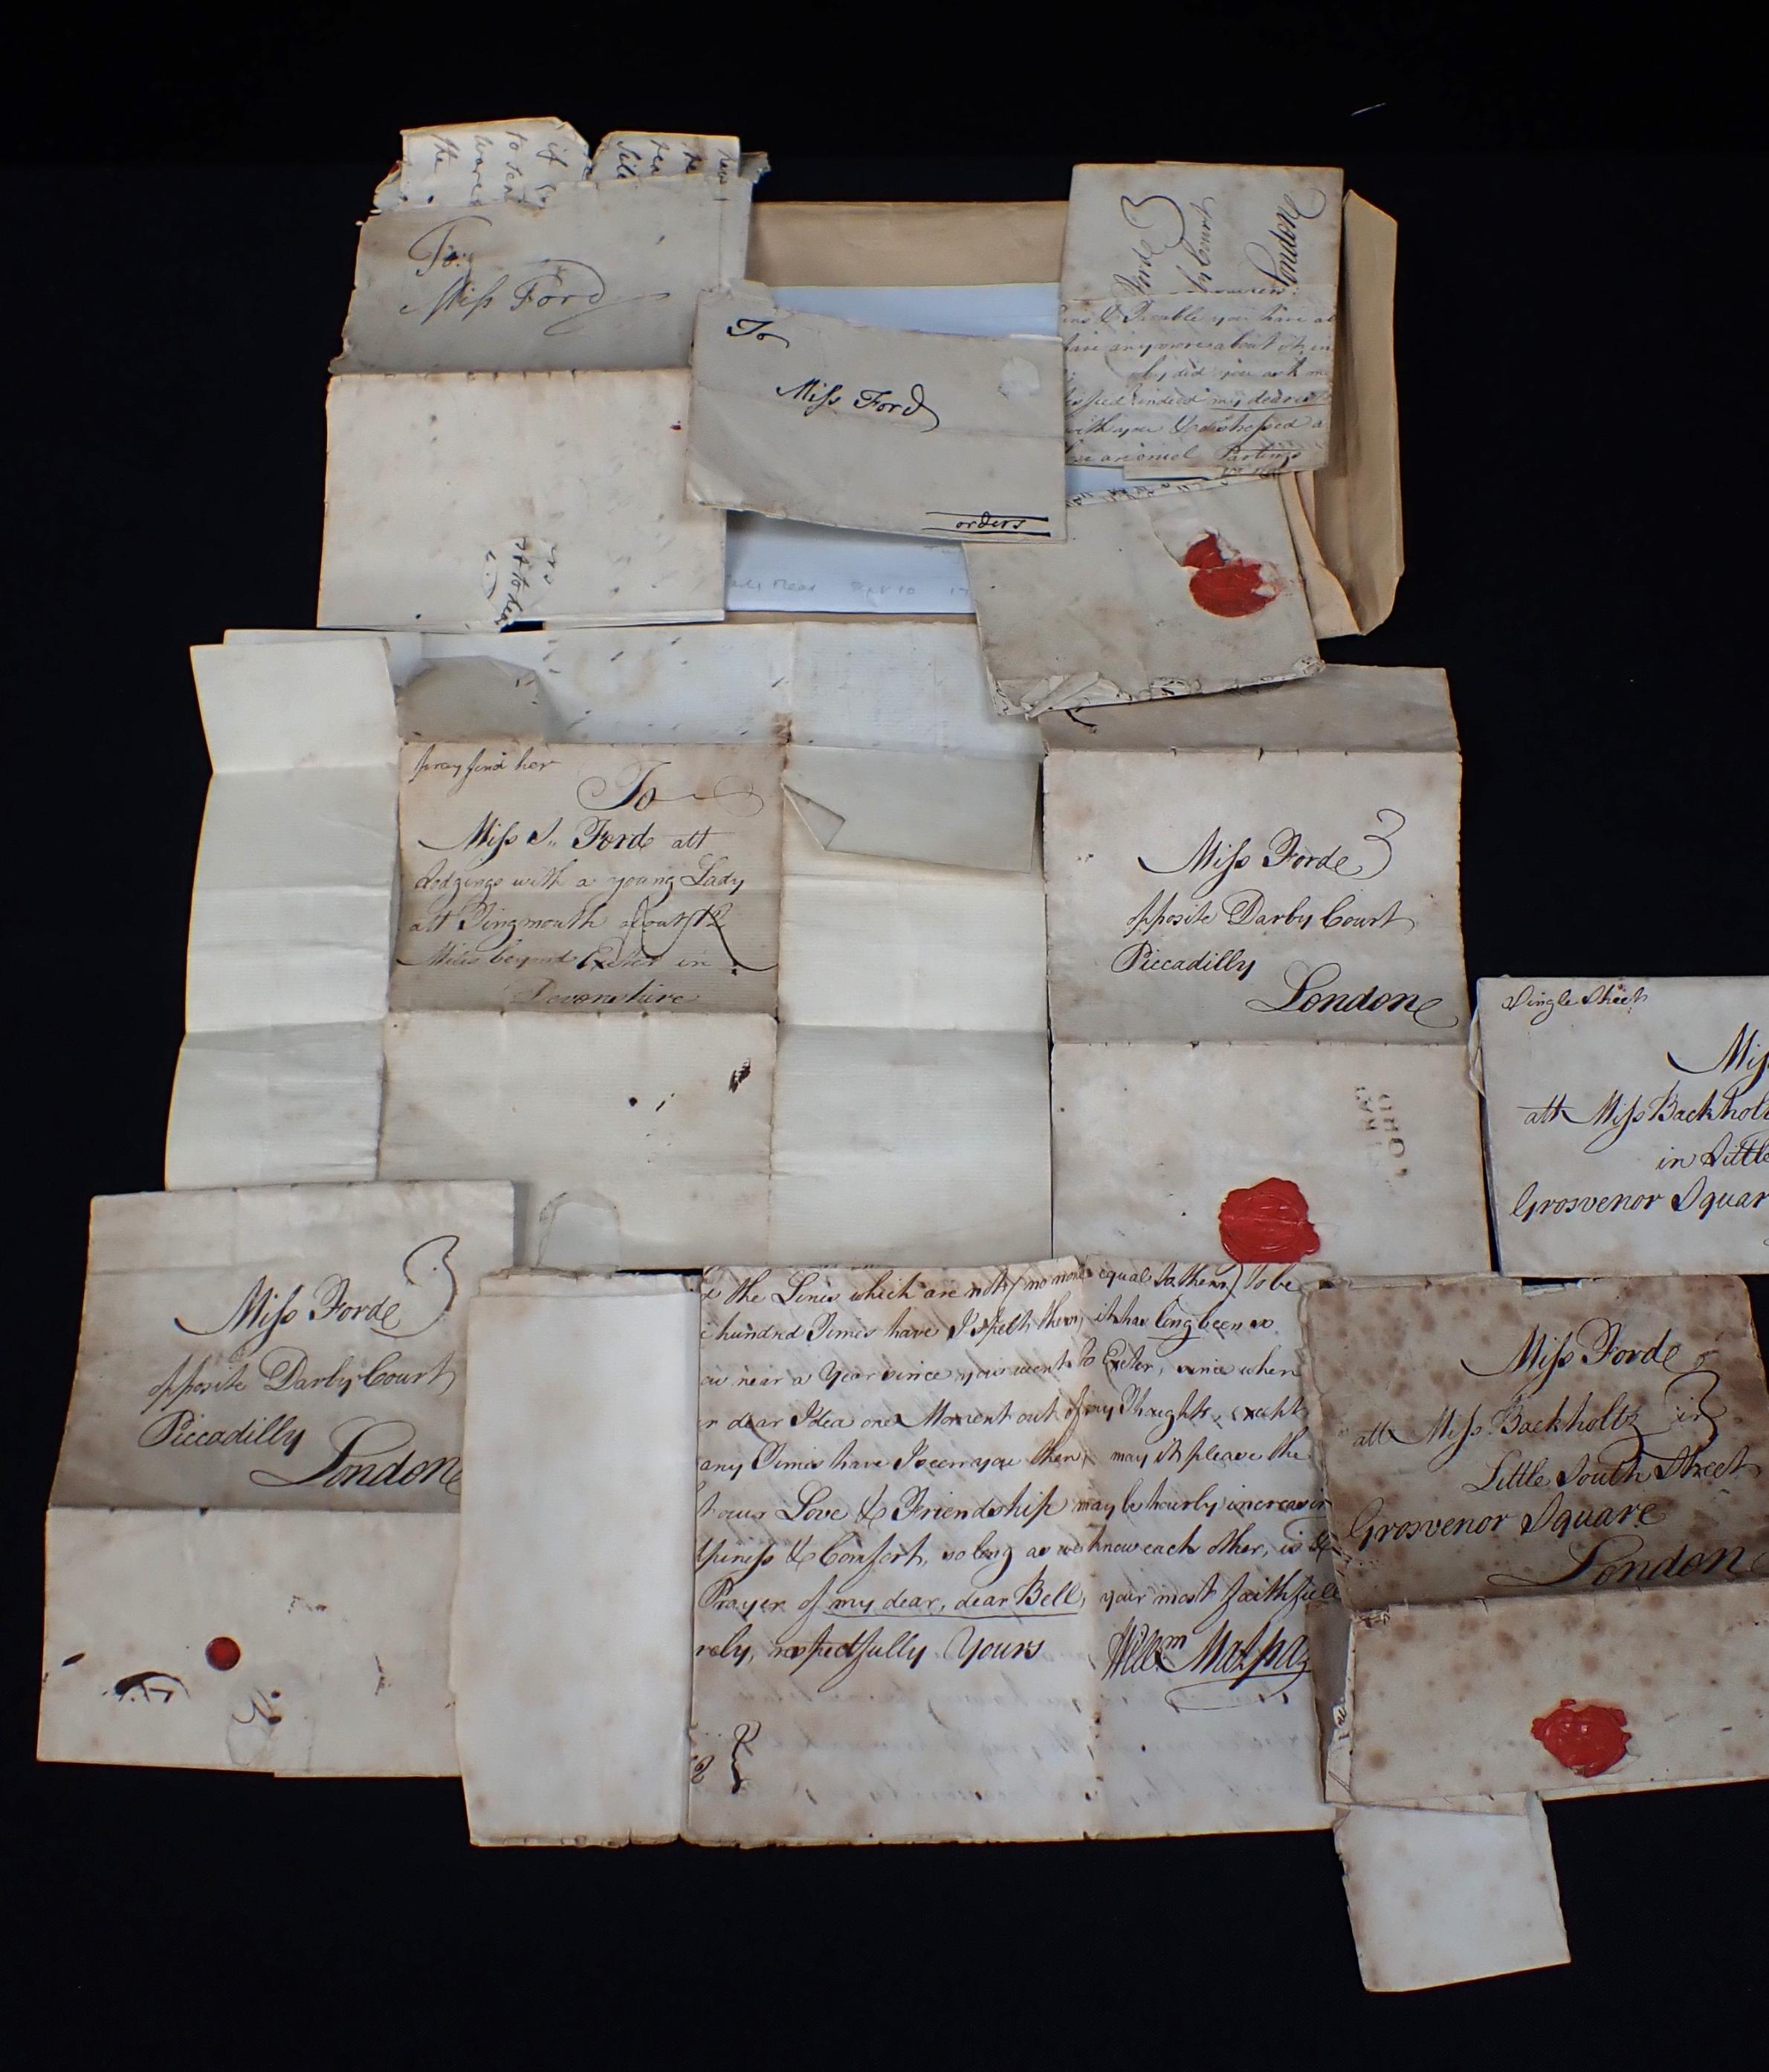 the
were
to sen
if
Sill
To:
Miss Ford
To
Miss Ford
orders
Forde 3
Court
London
& Trouble you have al
have any more about it, in
why did you ask me
indeed my dearest
with you & distressed a
are cruel Partings
pray send her
To
Miss S. Forde att
Lodgings with a young Lady
att Tingmouth about 12
Miles beyond Exeter in
Devonshire
Miss Forde 3
opposite Darby Court
Piccadilly
London
Single Sheet
Mis
att Miss Backholt
in Little
Grosvenor Squar
Miss Forde 3
opposite Darby Court
Piccadilly
London
the Lines which are not (no none equal to them) to be
hundred Times have I spelt them, it has long been so
near a Year since you went to Exeter, since when
r dear Idea one Moment out of my Thoughts, except
any Times have I seen you then, may it please the
our Love & Friendship may be hourly increasin
ppiness & Comfort, so long as we know each other, is
Prayer of my dear, dear Bell, your most faithfull
rely, respectfully Yours Willm
Miss Forde
att Miss Backholtz in 3
Little South Street
Grosvenor Square
London